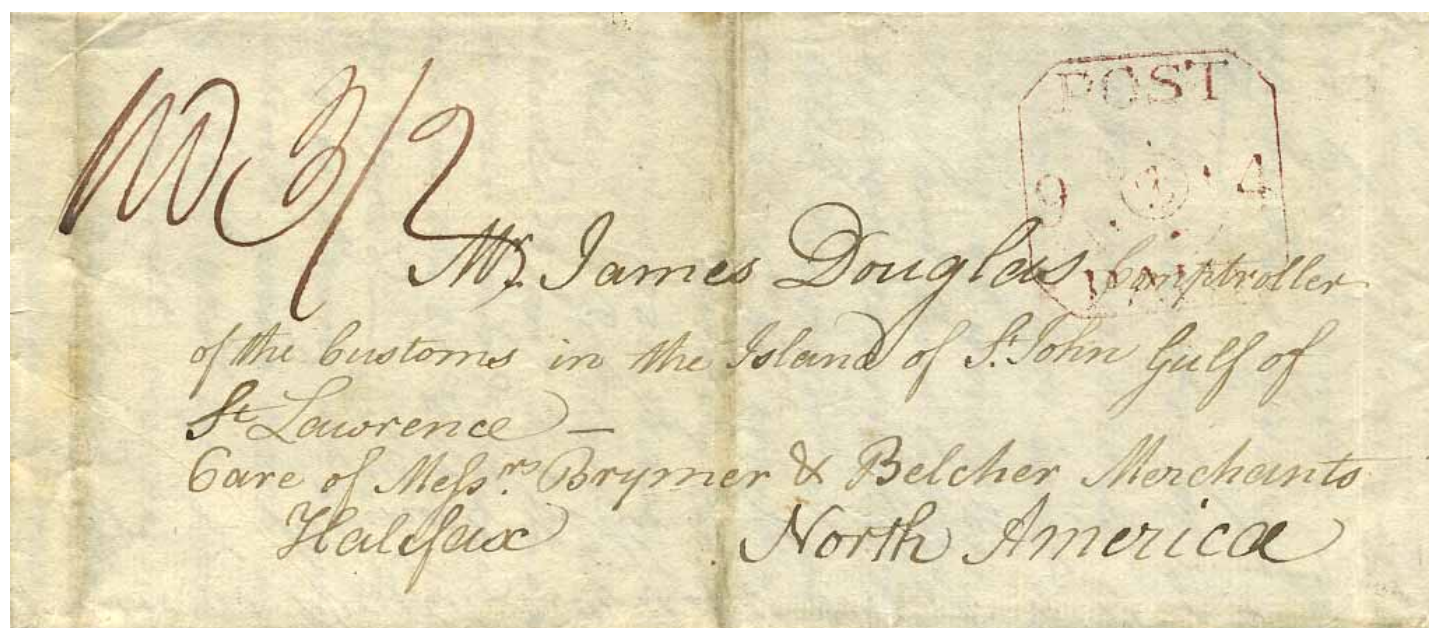 3/2
POST
9 4
PAID
Mr. James Douglas Comptroller
of the Customs in the Island of St. John Gulf of
St Lawrence —
Care of Messrs. Brymer & Belcher Merchants
Halifax North America